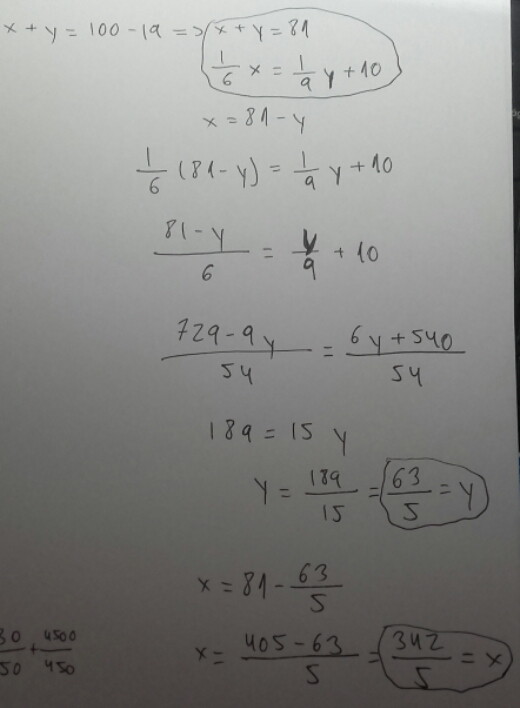 x + y = 100 - 19 => x + y = 81
1/6 x = 1/9 y + 10
x = 81 - y
1/6 (81 - y) = 1/9 y + 10
81 - y / 6 = y/9 + 10
729 - 9y / 54 = 6y + 540 / 54
189 = 15 y
y = 189/15 = 63/5 = y
x = 81 - 63/5
30/50 + 4500/450
x = 405 - 63 / 5 = 342/5 = x